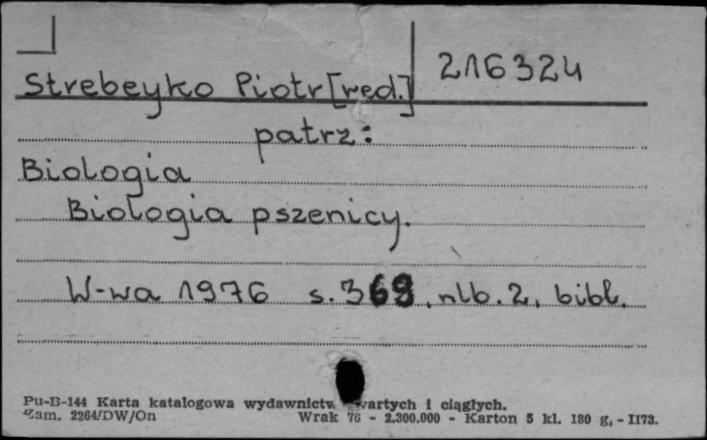 216324
Strebeyko Piotr [red.]
patrz:
Biologia
Biologia pszenicy.
W-wa 1976 s. 369, nlb. 2, bibl.
Pu-B-144 Karta katalogowa wydawnictw zwartych i ciągłych.
Zam. 2264/DW/On Wrak 76 - 2.300.000 - Karton 5 kl. 180 g, - II73.